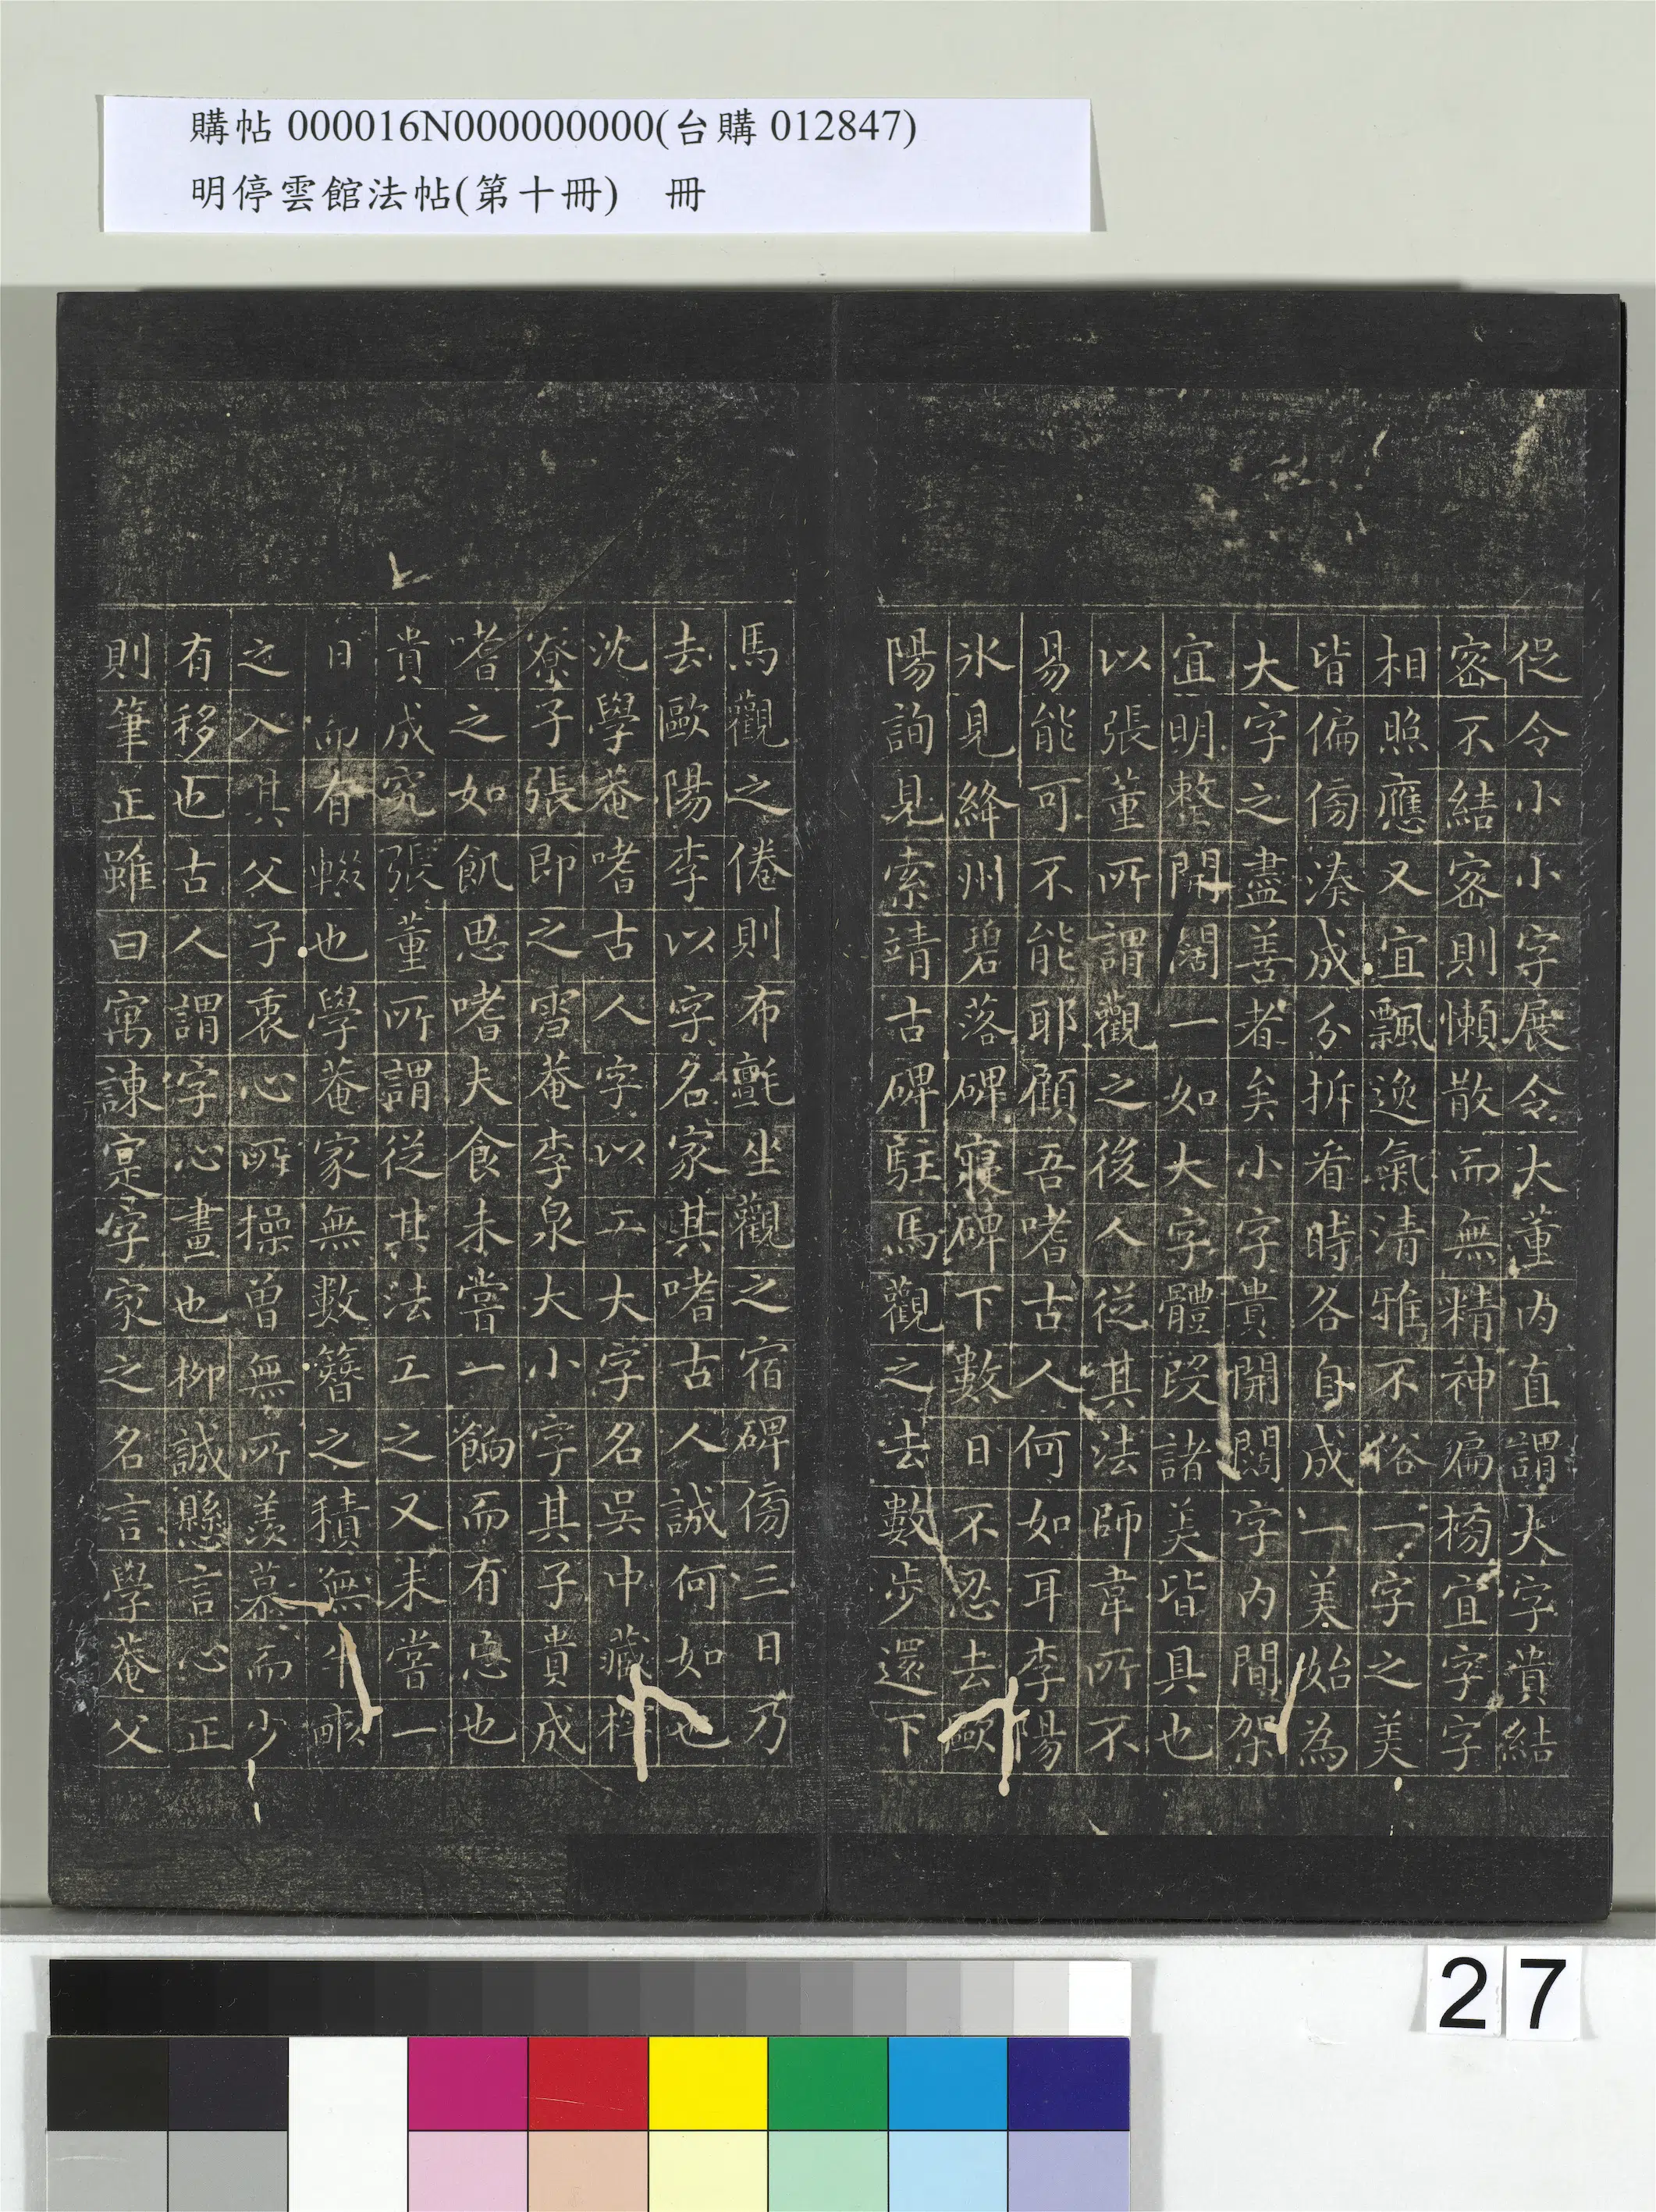 購帖 000016N000000000(台購 012847)
明停雲館法帖(第十冊)　冊
促令小小字展令大董内直謂大字貴結
密不結密則懶散而無精神扁榜宜字字
相照應又宜飄逸氣清雅不俗一字之美
皆偏傍湊成分拆看時各自成一美始為
大字之盡善者矣小字貴開闊字内間架
宜明整開闊一如大字體段諸美皆具也
以張董所謂觀之後人從其法師韋所不
易能可不能耶顧吾嗜古人何如耳李陽
氷見絳州碧落碑寢碑下數日不忍去歐
陽詢見索靖古碑駐馬觀之去數步還下
馬觀之倦則布氈坐觀之宿碑傍三日乃
去歐陽李以字名家其嗜古人誠何如也
沈學菴嗜古人字以工大字名吳中藏梓
寮子張即之雪菴李泉大小字其子貴成
嗜之如飢思嗜夫食未嘗一餉而有忘也
貴成究張董所謂從其法工之又未嘗一
日而有輟也學菴家無數簪之積無半畝
之入其父子衷心所操曾無所羨慕而少
有移也古人謂字心畫也柳誠懸言心正
則筆正雖曰寓諫寔字家之名言學菴父
27